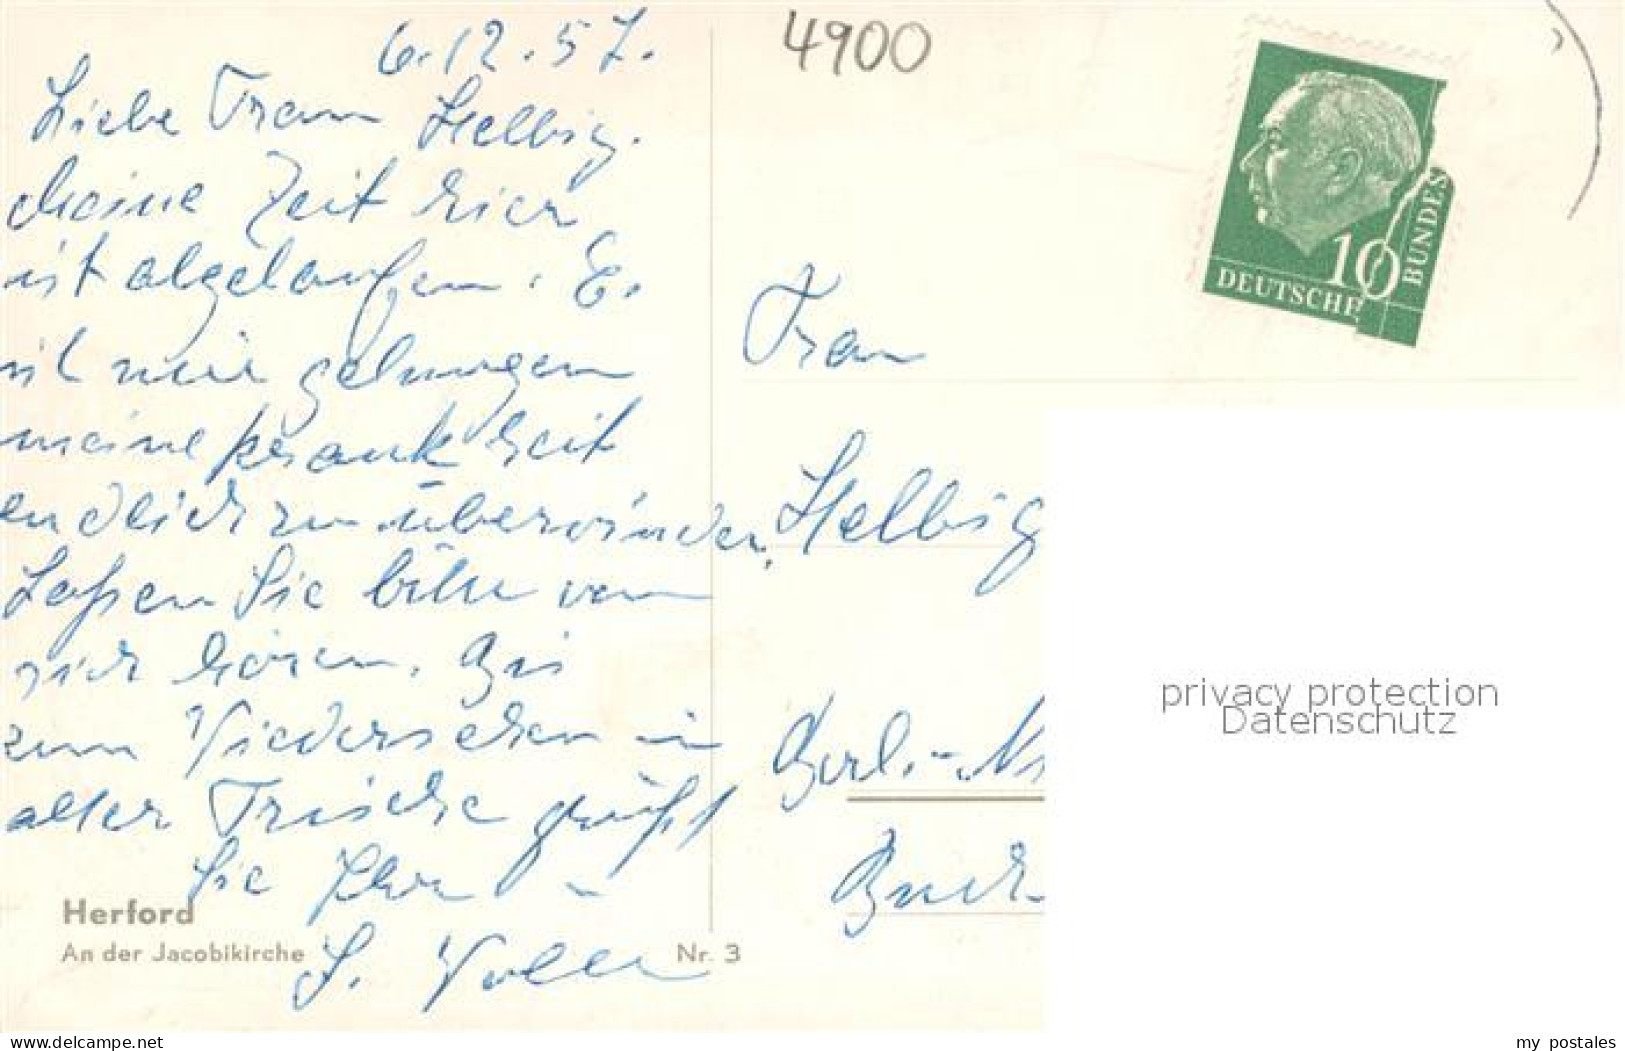 6.12.57.
Liebe Frau Helbig.
Meine Zeit hier
ist abgelaufen. Es
ist mir gelungen
meine Krankheit
endlich zu überwinden.
Laßen Sie bitte von
sich hören. Bis
zum Wiedersehen in
alter Frische grüßt
Sie Ihr
Herford
An der Jacobikirche
Nr. 3
4900
10
DEUTSCHE
BUNDES
Frau
Helbig
Berl.-
privacy protection
Datenschutz
www.delcampe.net
my_postales